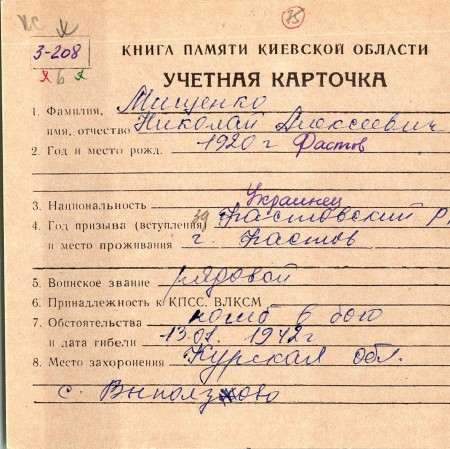 75
КС
3-208
КНИГА ПАМЯТИ КИЕВСКОЙ ОБЛАСТИ
УЧЕТНАЯ КАРТОЧКА
1. Фамилия, Мищенко
имя, отчество Николай Алексеевич
2. Год и место рожд. 1920 г Фастов
3. Национальность Украинец
4. Год призыва (вступления) 39 Фастовский Р
и место проживания г. Фастов
5. Воинское звание рядовой
6. Принадлежность к КПСС, ВЛКСМ
7. Обстоятельства погиб в бою
и дата гибели 13.01. 1942 г
8. Место захоронения Курская обл.
с. Выползово